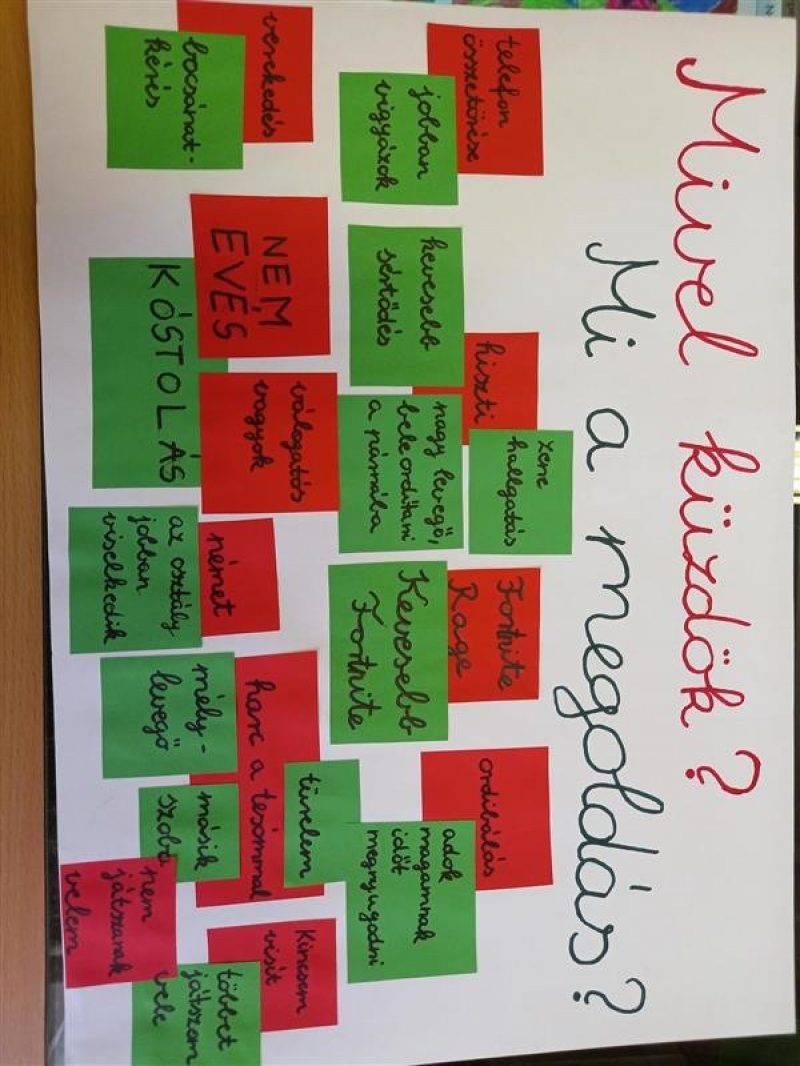 Mivel küzdök?
Mi a megoldás?
telefon
összetörése
jobban
vigyázok
kevesebb
sértődés
hiszti
zene
hallgatás
nagy levegő,
bele ordítani
a párnába
Fortnite
Rage
Kevesebb
Fortnite
ordibálás
adok
magamnak
időt
megnyugodni
verekedés
bocsánat-
kérés
NEM
EVÉS
KÓSTOLÁS
válogatós
vagyok
német
az osztály
jobban
viselkedik
harc a tesómmal
mély-
levegő
türelem
másik
szoba
nem
játszanak
velem
Kincsem
visít
többet
játszom
vele